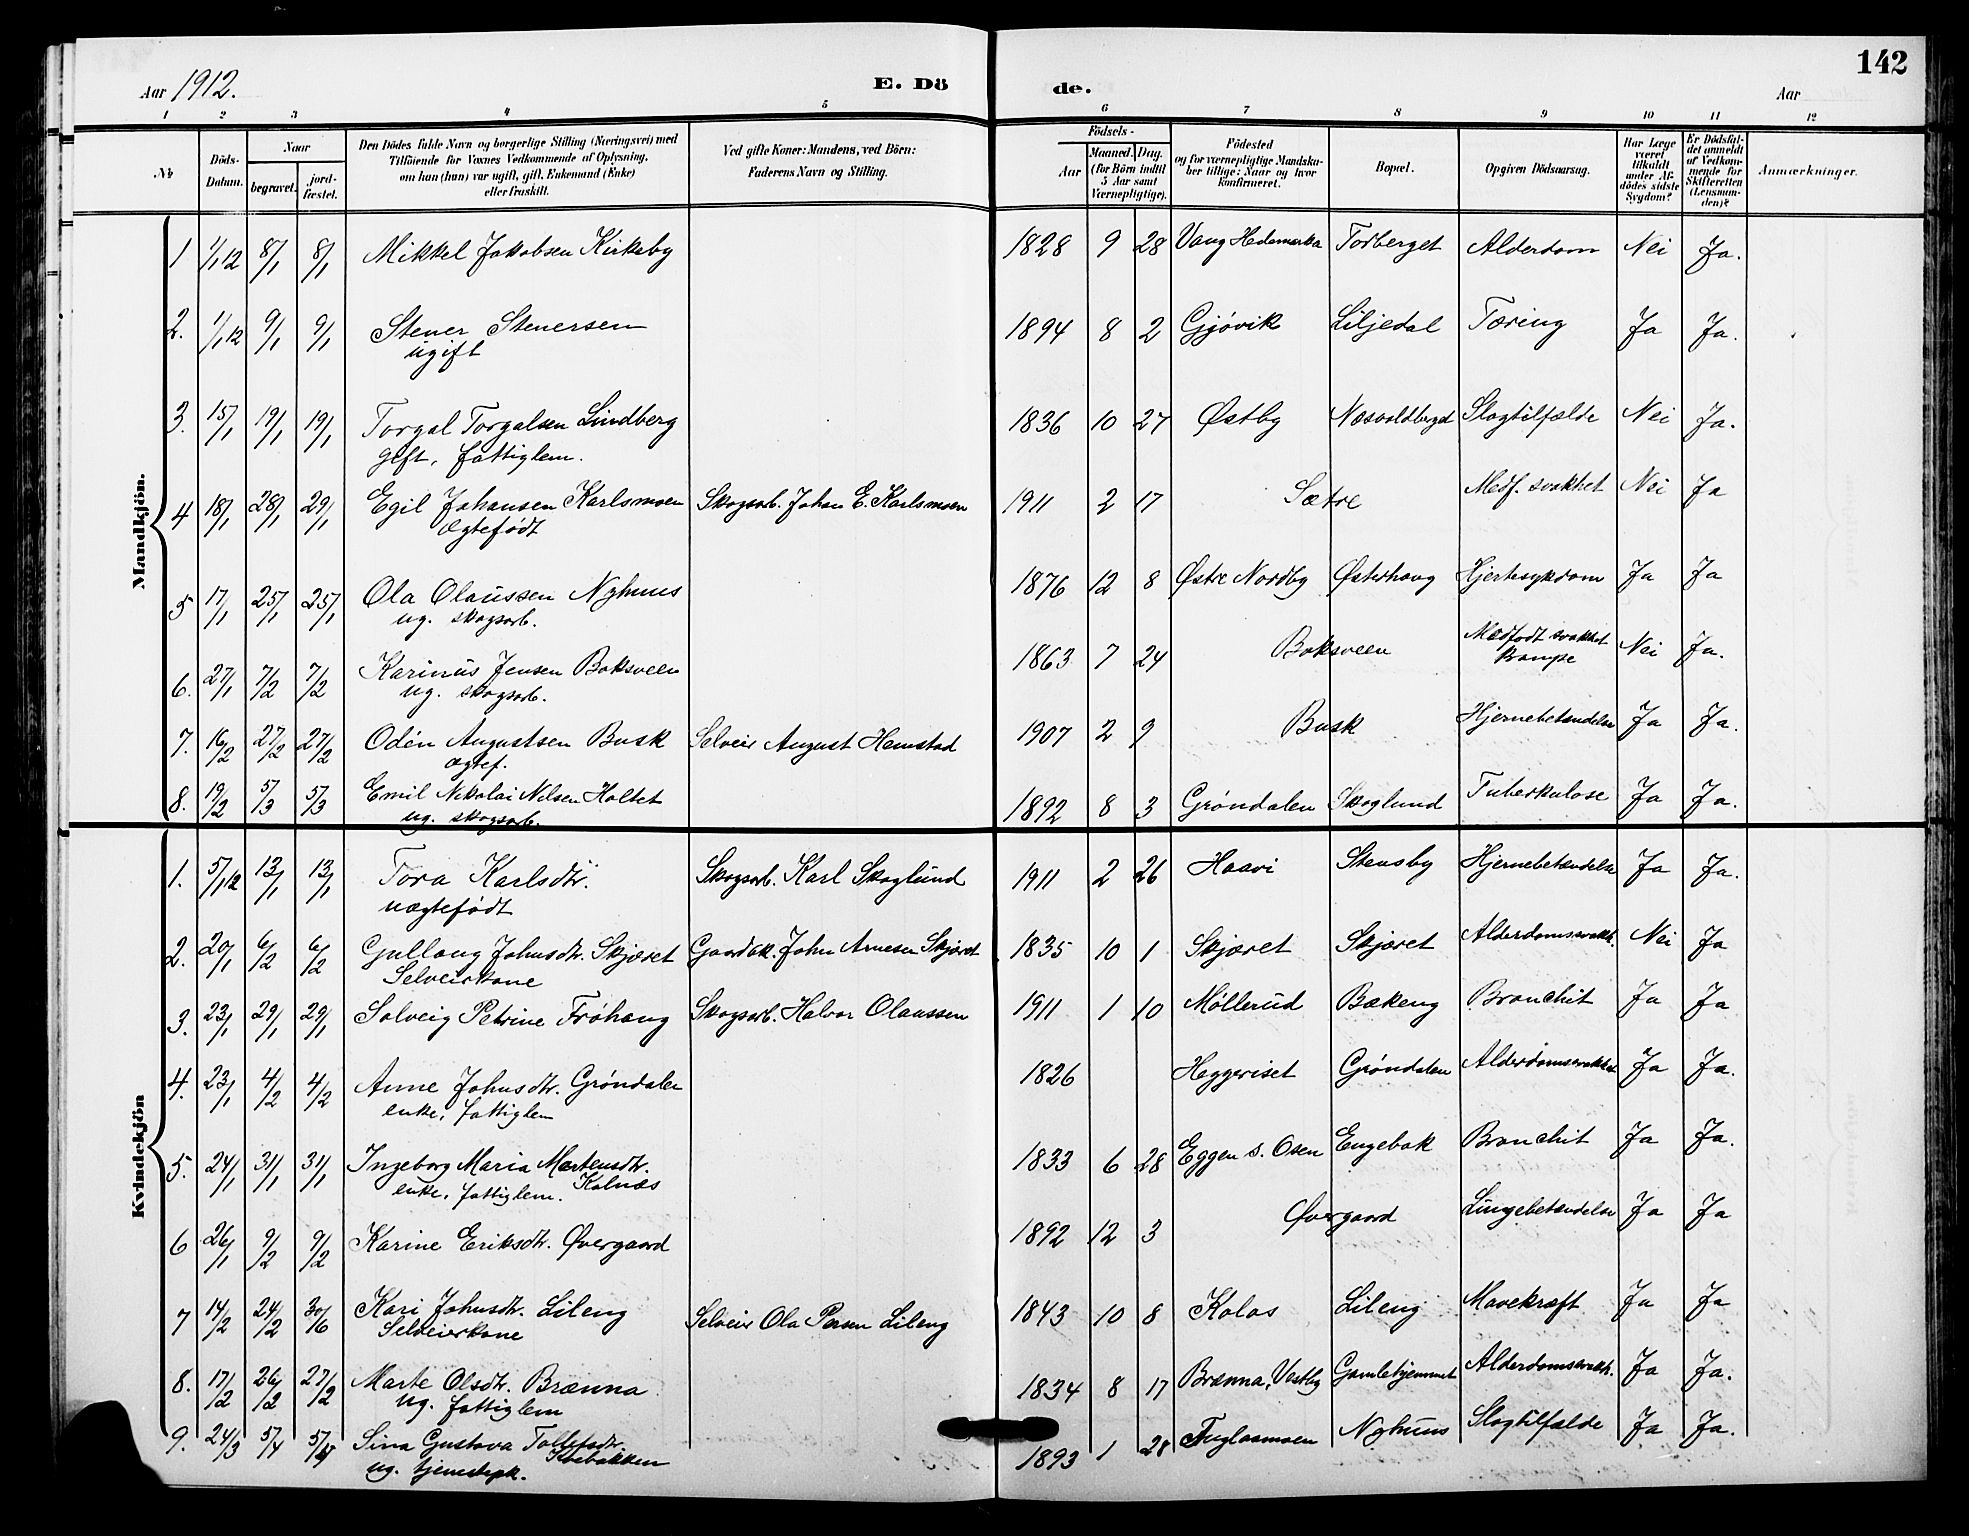 142
Aar 1912. E. Dö de. Aar
1 2 3 4 5 6 7 8 9 10 11 12
No
Döds-Datum.
Naar
begravet. jord-fæstet.
Den Dödes fulde Navn og borgerlige Stilling (Næringsvei) med
Tilföiende for Voxnes Vedkommende af Oplysning,
om han (hun) var ugift, gift, Enkemand (Enke)
eller fraskilt.
Ved gifte Koner: Mandens, ved Börn:
Faderens Navn og Stilling.
Födsels-
Aar
Maaned. Dag.
(for Börn indtil
5 Aar samt
Værnepligtige).
Födested
og for værnepligtige Mandska-
ber tillige: Naar og hvor
konfirmeret.
Bopæl.
Opgiven Dödsaarsag.
Har Læge
været
tilkaldt
under Af-
dödes sidste
Sygdom?
Er Dödsfal-
det anmeldt
af Vedkom-
mende for
Skifteretten
(Lensman-
den)?
Anmærkninger.
Mandkjön.
1 1/1 12 8/1 8/1 Mikkel Jakobsen Kirkeby 1828 9 28 Vang Hedemarka Torberget Alderdom Nei Ja.
2. 1/1 12 9/1 9/1 Stener Stenersen 1894 8 2 Gjøvik Liljedal Tæring Ja Ja.
ugift
3. 15/1 19/1 19/1 Torgal Torgalsen Lindberg 1836 10 27 Østby Næsvoldberget Slagtilfælde Nei Ja.
gift, fattiglem.
4 18/1 28/1 29/1 Egil Johansen Karlsmoen Skogsarb. Johan E. Karlsmoen 1911 2 17 Sætre Medf. svakhet Nei Ja
Ægtefødt
5 17/1 25/1 25/1 Ola Olaussen Nyhuus 1876 12 8 Østre Nordby Østerhaug Hjertesykdom Ja Ja
ug. skogsarb.
6. 27/1 7/2 7/2 Karinus Jensen Baksveen 1863 7 24 Baksveen Medfødt svakhet Krampe Nei Ja.
ug. skogsarb.
7. 16/2 27/2 27/2 Odén Augustsen Busk Selveier August Hemstad 1907 2 9 Busk Hjernebetændelse Ja Ja.
ægtef.
8. 19/2 5/3 5/3 Emil Nikolai Nilsen Holtet 1892 8 3 Grøndalen Skoglund Tuberkulose Ja Ja.
ug. skogsarb.
Kvindekjön
1. 5/1 12 13/1 13/1 Tora Karlsdtr. Skogsarb. Karl Skoglund 1911 2 26 Haavi Stensby Hjernebetændelse Ja Ja.
uægtefødt
2. 20/1 6/2 6/2 Gullaug Johnsdtr. Skjæret Gaardbr. John Arnesen Skjæret 1835 10 1 Skjæret Skjæret Alderdomssvakh. Nei Ja
Selveierkone
3. 23/1 29/1 29/1 Solveig Petrine Frøhaug Skogsarb. Halvor Olaussen 1911 1 10 Møllerud Bækeng Bronchit Ja Ja
4. 23/1 4/2 4/2 Anne Johnsdtr. Grøndalen 1826 Heggeriset Grøndalen Alderdomssvakhet Ja Ja.
enke, fattiglem
5. 24/1 31/1 31/1 Ingeborg Maria Martensdtr. 1833 6 28 Eggen s. Osen Engebak Bronchit Ja Ja.
enke, fattiglem. Kolnæs
6 26/1 9/2 9/2 Karine Eriksdtr. Øvergaard 1892 12 3 Øvergaard Lungebetændelse Ja Ja
7 14/2 24/2 30/6 Kari Johnsdtr. Lileng Selveier Ola Persen Lileng 1843 10 8 Kolos Lileng Mavekræft Ja Ja
Selveierkone
8. 17/2 26/2 27/2 Marte Olsdtr. Brænna 1834 8 17 Brænna, Vestby Gamlehjemmet Alderdomssvakh. Ja Ja.
ug. fattiglem
9. 24/3 5/4 5/4 Sina Gustava Tollefsdtr. 1893 1 28 Fuglaasmoen Nyhuus Slagtilfælde Ja Ja.
ug. tjenestepk. Kvebakken